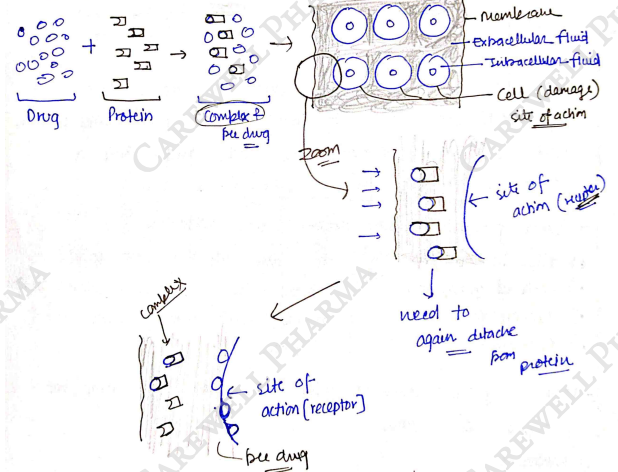 Drug
+
Protein
Complex &
free drug
membrane
Extracellular fluid
Intracellular fluid
Cell (damage)
site of action
Zoom
site of
action (receptor)
need to
again detache
from
protein
complex
site of
action [receptor]
free drug
CAREWELL PHARMA
CAREWELL PHARMA
CAREWELL PHARMA